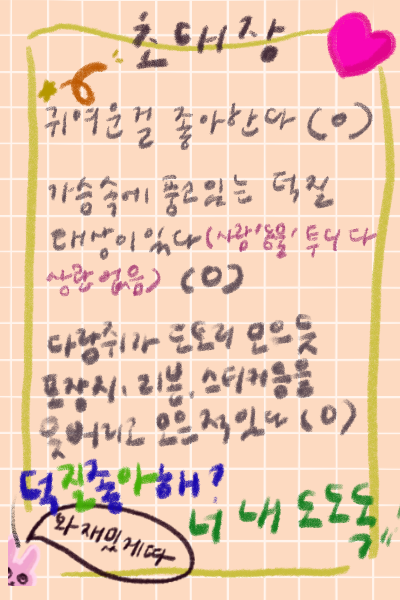 초대장
귀여운걸 좋아한다 (O)
가슴속에 품고있는 덕질
대상이 있다 (사람, 동물, 투디 다
상관 없음) (O)
다람쥐가 도토리 모으듯
포장지, 리본, 스티커등을
못버리고 모은적있다 (O)
덕질좋아해?
너 내 도도독
와 재밌게따